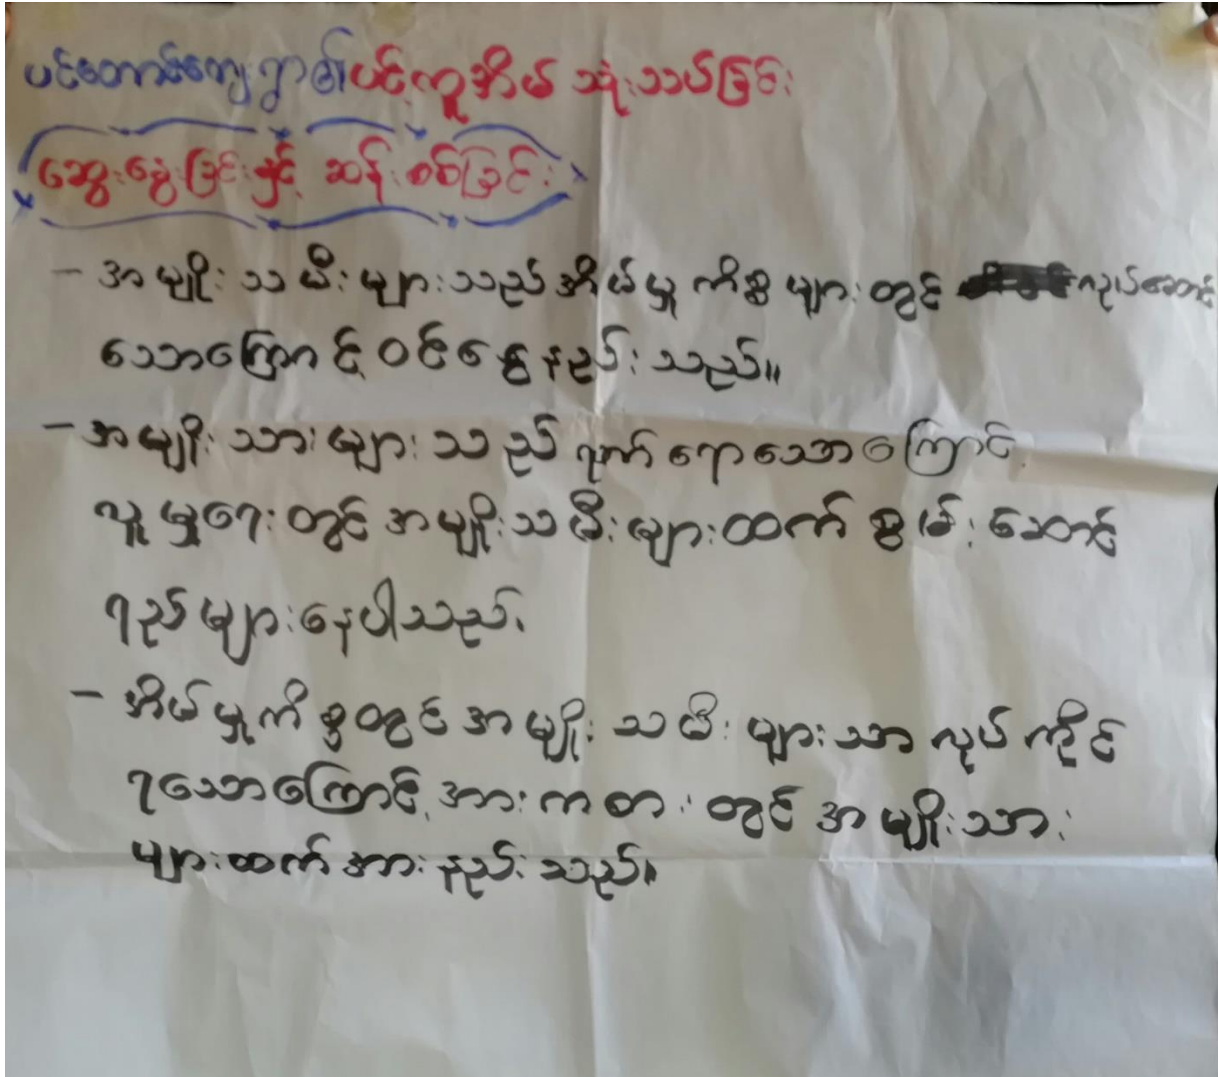 ပင်တောင်ကျေးရွာ၏ ပင့်ကူအိမ် သုံးသပ်ခြင်း
ဆွေးနွေးခြင်းနှင့် ဆန်းစစ်ခြင်း
- အမျိုးသမီးများသည် အိမ်မှုကိစ္စများတွင် လုပ်ဆောင်
သောကြောင့် ဝင်ငွေနည်းသည်။
- အမျိုးသားများသည် ရသောကြောင့်
လူမှုရေးတွင် အမျိုးသမီးများထက် စွမ်းဆောင်
ရည်များနေပါသည်၊
- အိမ်မှုကိစ္စတွင် အမျိုးသမီးများသာ လုပ်ကိုင်
ရသောကြောင့် အားကစားတွင် အမျိုးသား
များထက် အားနည်းသည်။